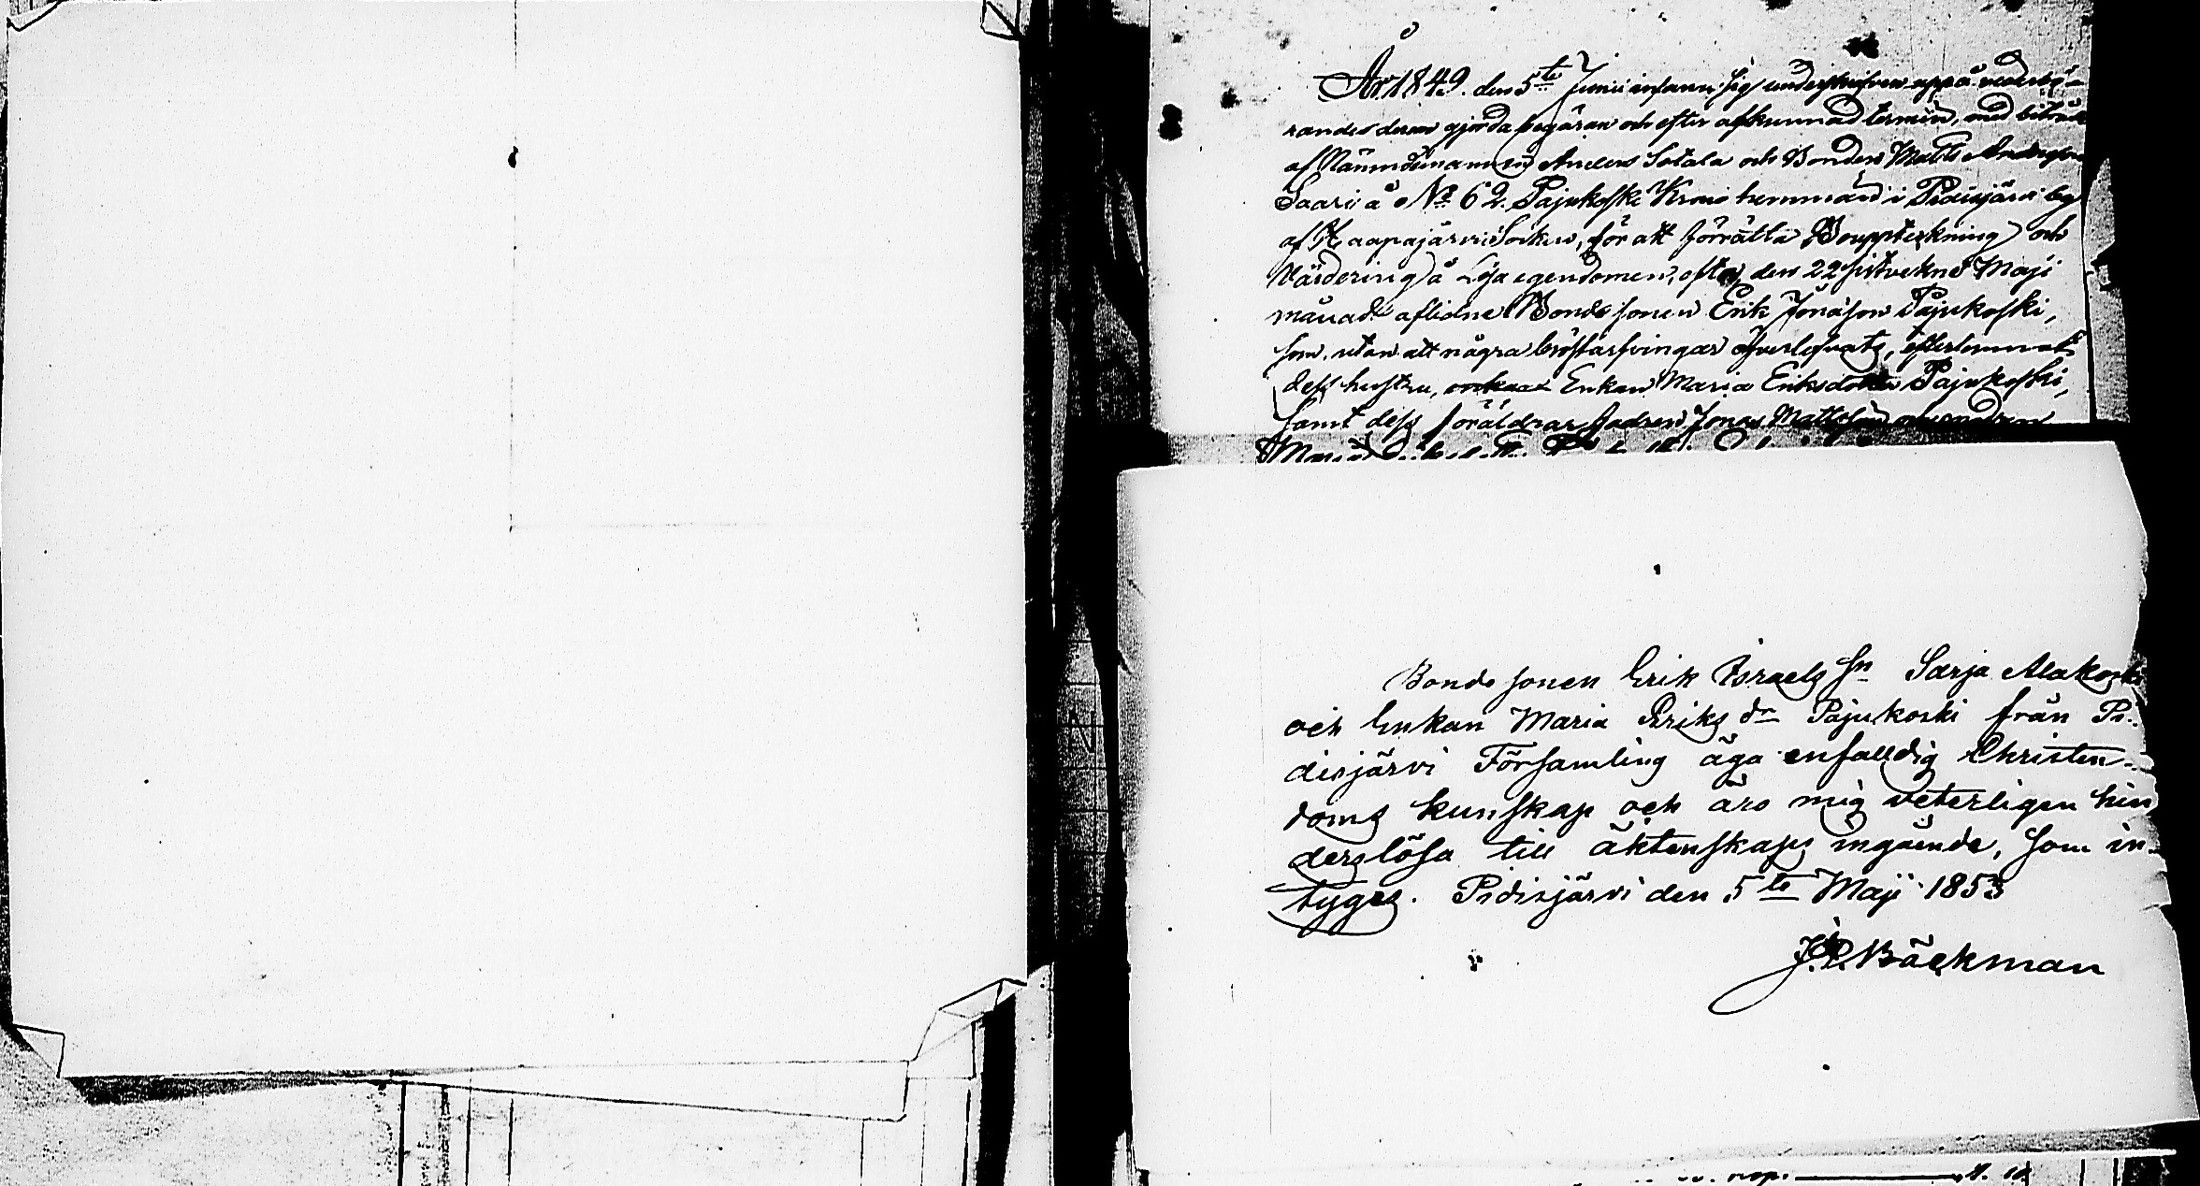 År 1849. den 5te Junii infann sig undertecknad uppå vederbö-
randes derom gjorda begäran och efter afkunnad termin, med biträde
af Nämndemannen Anders Sotala och Bonden Matts Andersson
Saari å No 62. Pajukoski Krono hemman i Pidisjärvi by
af Haapajärvi Socken, för att förrätta Bouppteckning och
Värdering å Lösa egendomen, efter den 22 sistvekne Maji
månad aflidne Bonde sonen Erik Jonasson Pajukoski,
som, utan att några bröstarfvingar öfverlefvats, efterlemnat
dess hustru, Enkan Maria Eriksdotter Pajukoski,
samt dess föräldrar fadren Jonas Mattsson och modren
Maria
Bonde sonen Erik Israels sn Sarja Alakoski
och Enkan Maria Eriks dr Pajukoski från Pi-
disjärvi Församling äga enfalldig Christen-
doms kunskap och äro mig veterligen hin
derslösa till äktenskaps ingående, som in-
tygas. Pidisjärvi den 5te Maji 1853
J. P. Bäckman